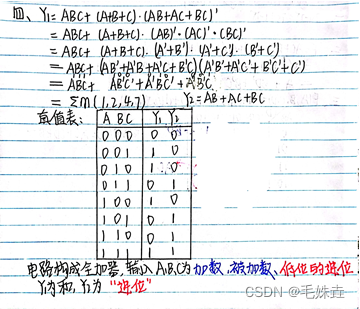 四、Y₁= ABC+ (A+B+C)·(AB+AC+BC)'
= ABC+ (A+B+C)·(AB)'·(AC)'·(BC)'
= ABC+ (A+B+C)·(A'+B')·(A'+C')·(B'+C')
= ABC+ (AB'+A'B+A'C+B'C)(A'B'+A'C'+B'C'+C')
= ABC+ AB'C'+A'BC'+A'B'C
= Σm(1,2,4,7) Y₂=AB+AC+BC
真值表: A B C Y₁ Y₂
0 0 0 0 0
0 0 1 1 0
0 1 0 1 0
0 1 1 0 1
1 0 0 1 0
1 0 1 0 1
1 1 0 0 1
1 1 1 1 1
电路构成全加器,输入A、B、C为加数、被加数、低位的进位
Y₁为和,Y₂为“进位”
CSDN @毛姝垚